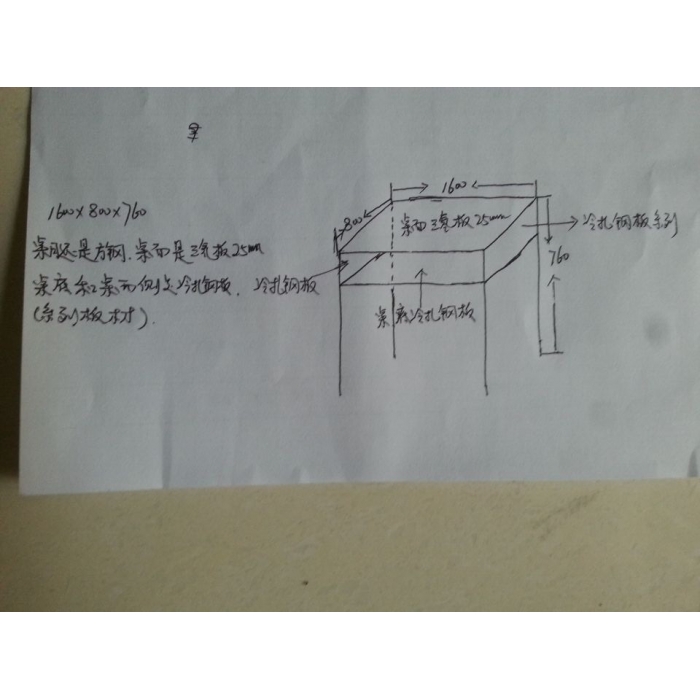 1600×800×760
桌脚还是方钢.桌面是三氢板25mm
桌底和桌面侧是冷扎钢板.
(系列板材).
1600
800
桌面三氢板25mm
冷扎钢板系列
760
冷扎钢板
桌底冷扎钢板